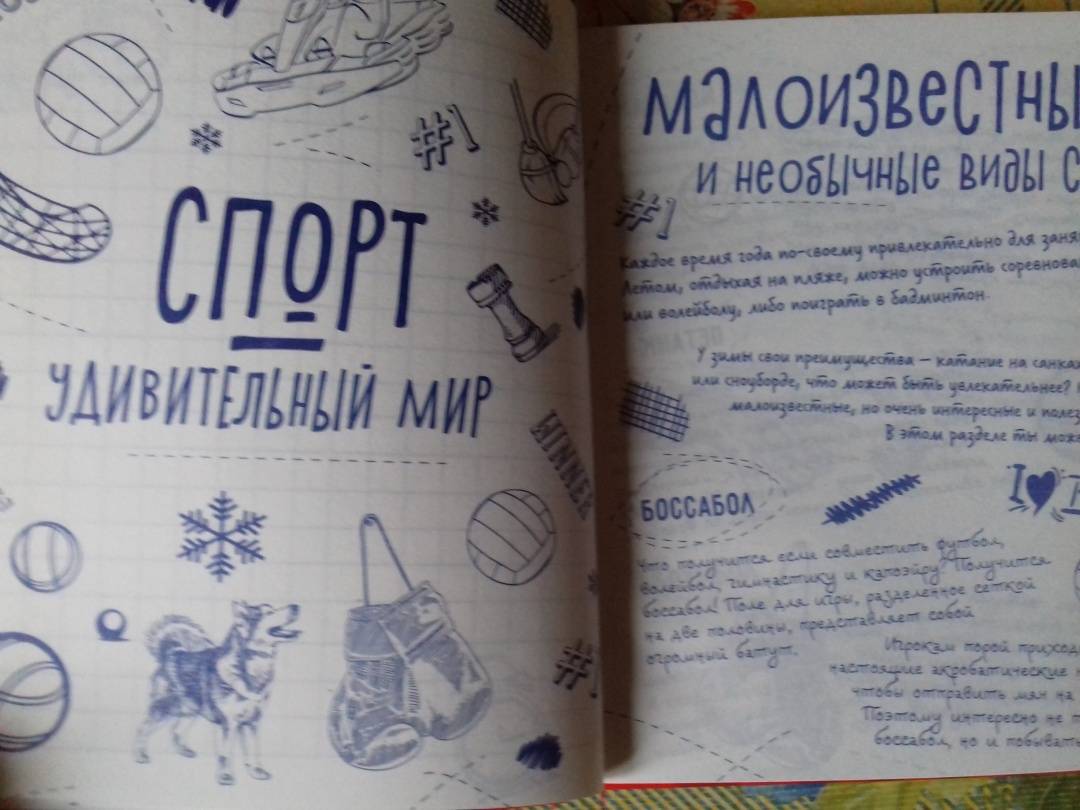 #1
СПОРТ
УДИВИТЕЛЬНЫЙ МИР
WINNER
#1
МАЛОИЗВЕСТНЫ
и необычные виды с
#1
Каждое время года по-своему привлекательно для заня
Летом, отдыхая на пляже, можно устроить соревнова
или волейболу, либо поиграть в бадминтон.
У зимы свои преимущества – катание на санка
или сноуборде, что может быть увлекательнее?
малоизвестные, но очень интересные и полез
В этом разделе ты може
БОССАБОЛ
I
Что получится если совместить футбол,
волейбол, гимнастику и капоэйру? Получится
боссабол! Поле для игры, разделенное сеткой
на две половины, представляет собой
огромный батут.
Игрокам порой приход
настоящие акробатические
чтобы отправить мяч на
Поэтому интересно не т
боссабол, но и побывать